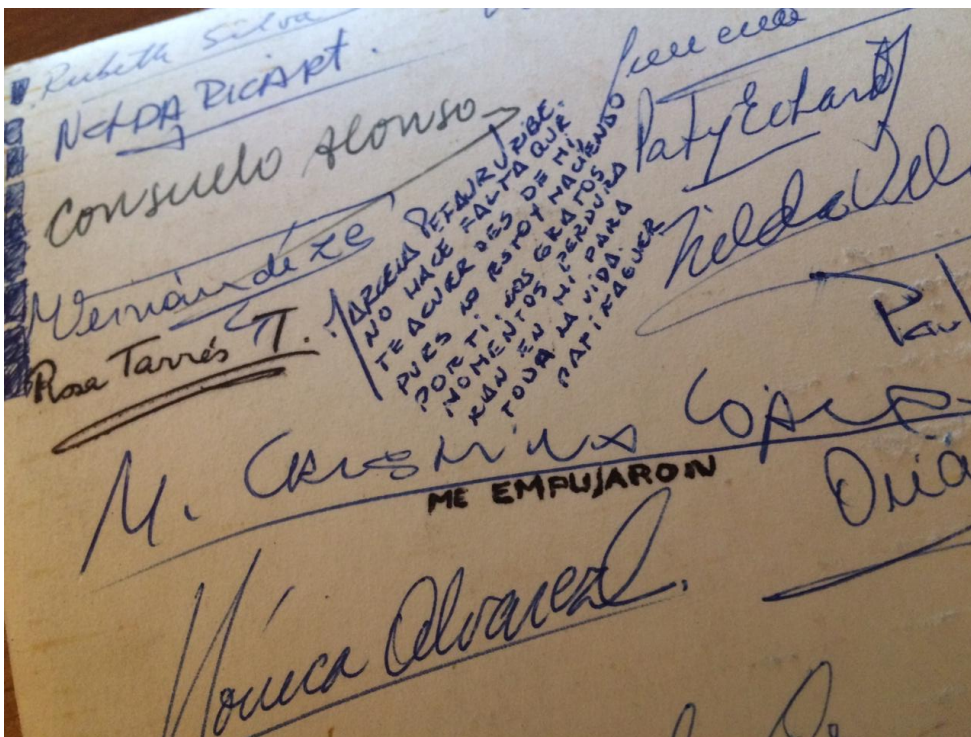 Rubeth Silva
NELDA RICART.
Consuelo Alonso
Hernández
Rosa Tarrés T.
MARCELA PETAURURIBE.
NO HACE FALTA QUE
TE ACUERDES DE MÍ,
PUES NO ESTOY NACIENDO
POR TI, LOS GRATOS
MOMENTOS PERDURA
RAN EN MI PARA
TODA LA VIDA.
Paty Echard
Hilda Vel
M. Cristina
ME EMPUJARON
Mónica Alvarez